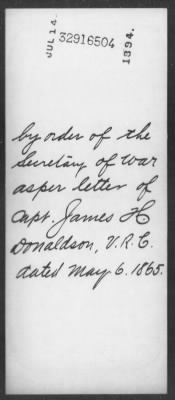 JUL 14. 32916504 1894.
by order of the
Secretary of War
as per letter of
Capt. James H.
Donaldson, V.R.C.
dated May 6. 1865.